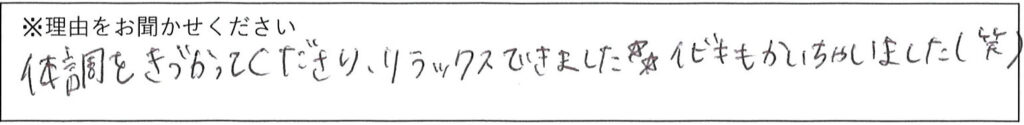 ※理由をお聞かせください
体調をきづかってくださり、リラックスできました☆☆ イビキもかいちゃいました(笑)